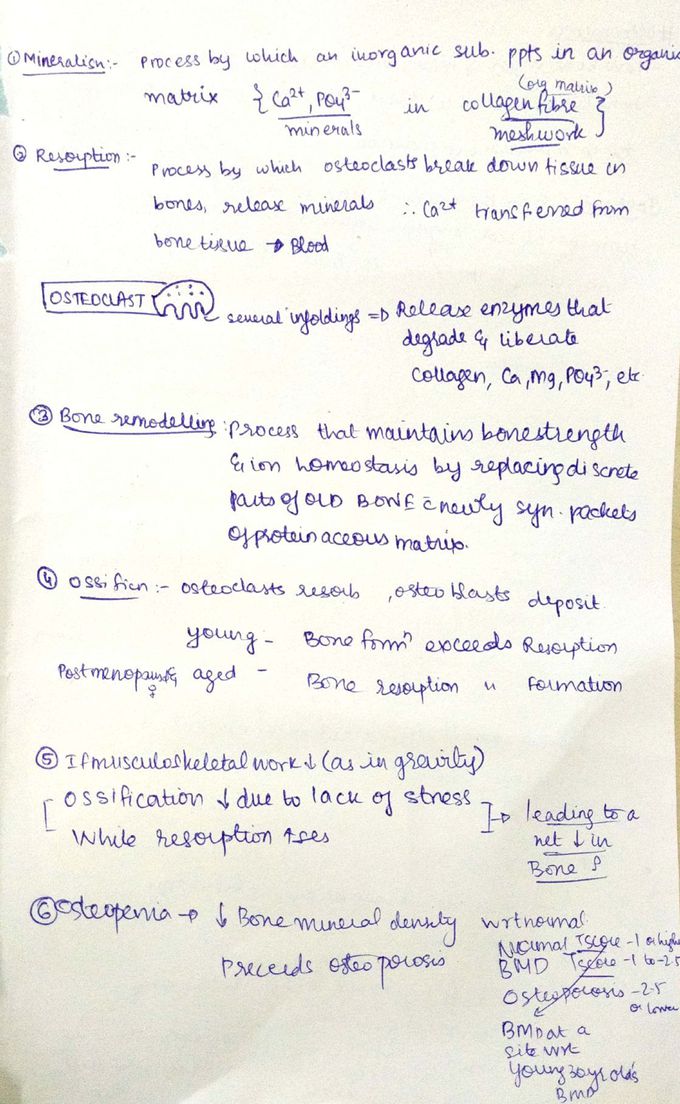 ① Mineralisn:- Process by which an inorganic sub. ppts in an organic
(org matrix)
matrix { Ca²⁺, PO₄³⁻ in collagen fibre }
minerals meshwork
② Resorption:- Process by which osteoclasts break down tissue in
bones, release minerals ∴ Ca²⁺ transferred from
bone tissue → Blood
OSTEOCLAST several infoldings ⇒ Release enzymes that
degrade & liberate
collagen, Ca, Mg, PO₄³⁻, etc
③ Bone remodelling: Process that maintains bone strength
& ion homeostasis by replacing discrete
parts of OLD BONE c̄ newly syn. packets
of proteinaceous matrix.
④ Ossificn:- osteoclasts resorb, osteoblasts deposit.
young - Bone formⁿ exceeds Resorption
Postmenopausal ♀ & aged - Bone resorption " Formation
⑤ If musculoskeletal work ↓ (as in gravity)
[ Ossification ↓ due to lack of stress
While resorption ↑ses ] → leading to a
net ↓ in
Bone ρ
⑥ Osteopenia → ↓ Bone mineral density wrt normal.
Preceeds osteoporosis
Normal Tscore -1 or higher
BMD Tscore -1 to -2.5
Osteoporosis -2.5
or lower
BMD at a
site wrt
young 30 yr old's
BMD